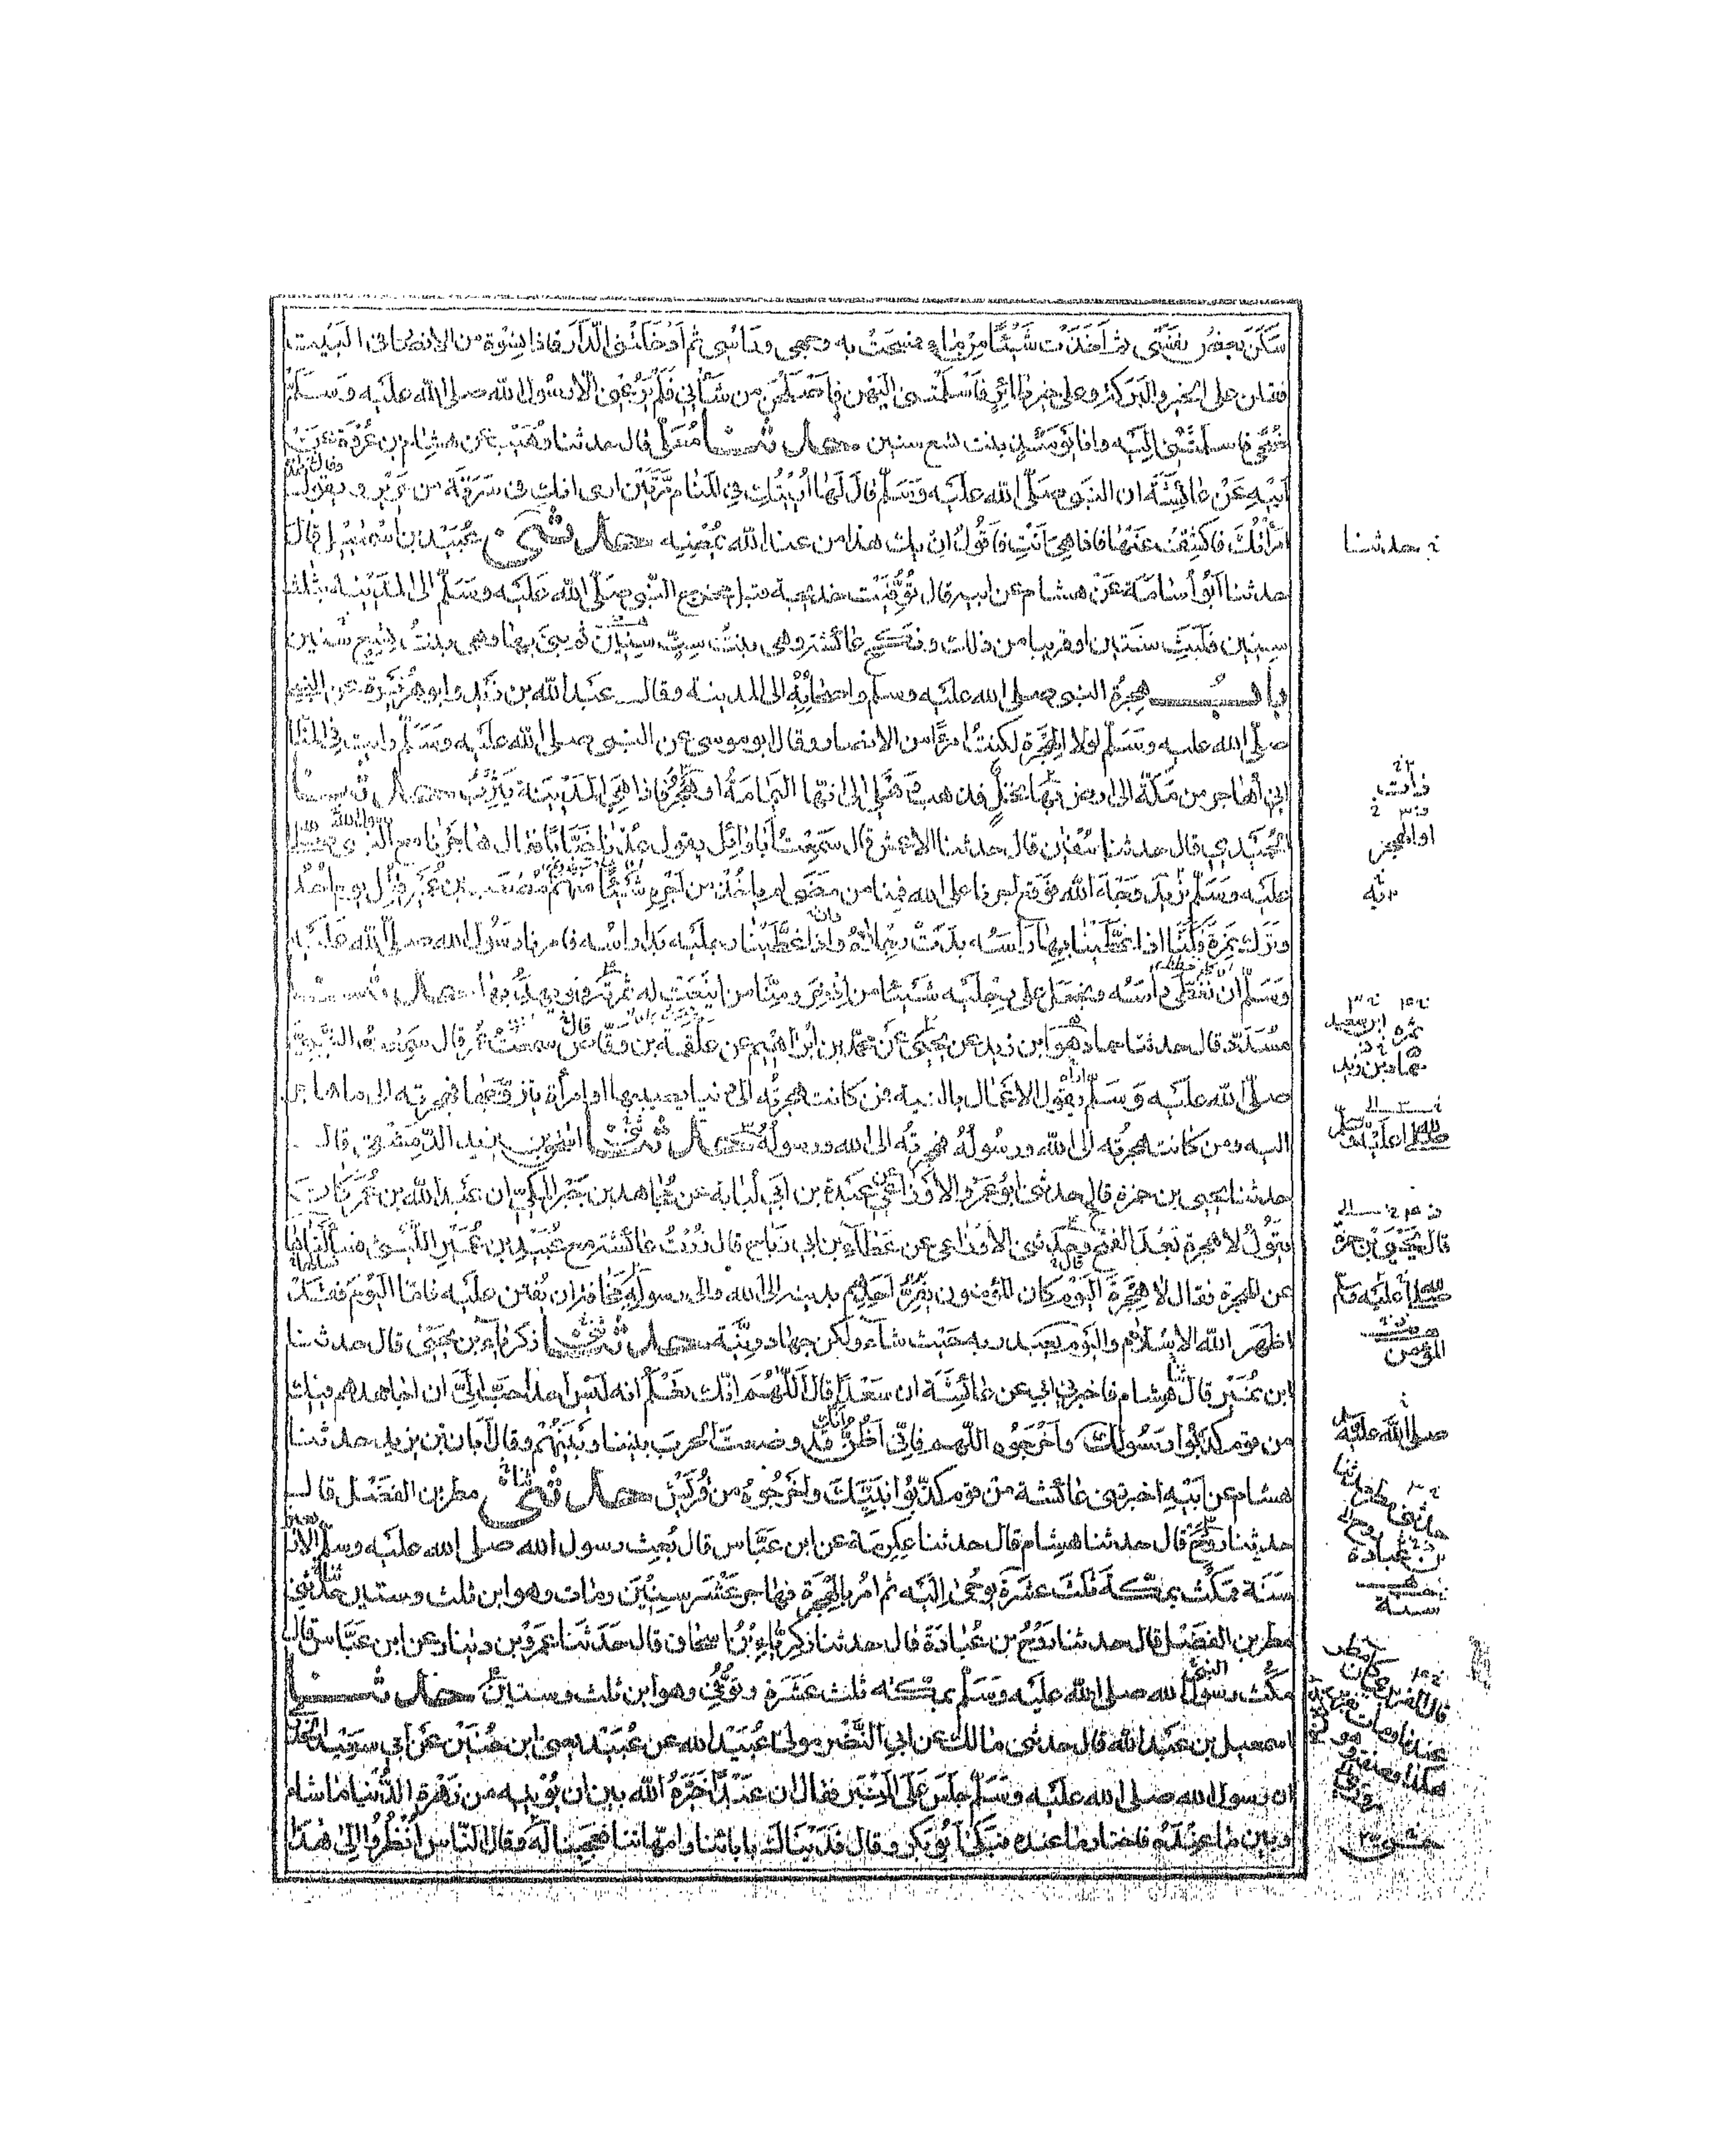 سَكَنَ بعضُ نفَسَي ثم اَخَذَت شَيْئًا مِن مَاءٍ فمسحَتْ به وجهي ورَاسي ثم اَدخَلتْني الدّارَ فاذا نِسْوَة من الانصار في البَيت
فقلن على الخير والبَركة وعلى خير طائرٍ فاَسْلَمتْني اليهن فاَصْلَحْنَ من شَأني فَلَمْ يَرُعْني الّا رسول الله صلى الله عليه وسلم
ضُحًى فاسلمتْني اليه وانا يَومَئذٍ بنت تسع سنين حدثنا مُعَلّى قال حدثنا وُهَيْب عن هشام بن عُرْوَة عن
اَبيه عَنْ عائِشَةَ ان النبي صَلّى الله عليه وسَلّم قال لَهَا اُرِيتُكِ في المنام مَرَّتَيْن ارى انك في سَرَقَة من حَرِيْر ويقول
امراَتُكَ فاكشِفُ عَنْهَا فاذا هي اَنْتِ فاَقُولُ اِن يك هذا من عند الله يُمْضِه حدثني عُبَيْد بن اسْمعيل قال
حدثنا اَبُو اُسَامَة عَنْ هشام عن ابيه قال تُوُفِّيَت خديجة قبل مخرج النبي صَلّى الله عَلَيه وسَلّم الى المَدِيْنة بثلث
سِنين فَلَبِثَ سنَتَين او قريبا من ذلك ونكح عائشة وهي بنتُ سِتِّ سِنِيْن ثم بنى بها وهي بنتُ تِسْع سِنين
باب هِجرَة النبي صلى الله عليه وسلم واصحابِه الى المدينة وقال عَبد الله بن زَيد وابو هُرَيْرَة عن النبي
صلّى الله عليه وسَلّم لولا الهِجْرَة لكنتُ امرَءًا من الانصار وقال ابو موسى عن النبي صلى الله عليه وسَلّم رايت في المنام
اَنّي اُهَاجر من مَكّة الى ارض بها نخل فذهب وَهَلي الى انّها اليَمامَةُ او هَجَرُ فاذا هِيَ المَدِيْنَة يَثْرِبُ حدثنا
الحُمَيْدي قال حدثنا سُفْيٰن قال حدثنا الاعمش قال سَمِعْتُ اَبَا وَائِل يقول عُدْنَا خَبَّابًا فقال هاجَرنا مع النبي صلى الله
عليه وسَلّم نُريد وَجْهَ الله فوَقع اجرنا على الله فمنا من مَضَى لم ياخُذ من اَجْرِهِ شَيْئًا منهُم مُصْعَب بن عُمَيْر قُتِل يومَ اُحُدٍ
وتَرَك نَمِرَةً فكُنّا اذا غَطَّيْنا بِها رَاْسَه بدَتْ رِجْلاهُ واذا غَطَّيْنا رجليه بدا راسُه فامرنا رَسُول الله صلى الله عَلَيْه
وَسَلّم اَن نُغَطّيَ رأسَه ونجعَل على رِجليه شَيْئا من اِذْخِر ومِنّا من اَيْنَعَت له ثَمَرَتُه فهو يَهْدِبُها حدثنا
مُسَدّد قال حدثنا حماد هو ابن زيد عن يحيى عَنْ محمّد بن اِبرَاهيم عن علقمة بن وَقّاص سمعتُ عُمَرَ قال سَمِعْتُ النَّبِيَّ
صَلّى الله علَيه وَسَلّم يقول الاعْمَال بالنيه فمن كانت هجرتُه الى دنيا يصيبها او امرأة يتزوّجُها فهجرته الى ما هاجر
اليه ومن كانت هجرتُه الى الله ورسُولهٖ فهجرتُه الى الله ورسولهٖ حدثني اسحٰق بن يزيد الدِّمَشْقيّ قال
حدثنا يحيى بن حمزة قال حدثني ابُو عَمْرٍو الاَوزَاعيّ عن عَبْدَة بن اَبي لُبَابة عن مُجَاهد بن جَبْر المكيّ ان عَبْد الله بن عُمَر كان
يقولُ لا هِجرة بَعْدَ الفتح وحدثني الاَوْزَاعي عن عَطَاء بن ابي رَبَاح قال زُرْتُ عائشة مع عُبَيْد بن عُمَيْر اللَّيْثيّ فسألناها
عن الهجرة فقال لا هِجْرَةَ اليَوْم كان المؤمنون يَفِرُّ اَحَدُهم بدينه الى الله والى رسولهٖ مَخَافة اَن يُفتَن عليه فامّا اليَوْم فقد
اظهَرَ الله الاِسْلام واليَوْم يعبد ربه حَيْث شاء ولكن جهاد ونِيَّة حدثني زكريّاء بن يحيى قال حدثنا
ابن نُمَيْر قال هِشام فاخبرني ابي عن عائِشَة ان سَعْدًا قال اَللّٰهُمّ اِنّك تعْلم انه لَيْسَ احد اَحَبَّ اِلَيَّ ان اجاهدهم فيك
من قوم كذبوا رَسُولك واَخْرَجُوه اللّهم فاِنّي اَظُنُّ اَنك قد وضعتَ الحربَ بيننا وبَيْنَهُم وقال اَبَان بن يزيد حدثنا
هشام عن اَبيه اخبرتني عائشة من قوم كذّبُوا نَبِيَّكَ واَخْرَجُوهُ من قُرَيْش حدثني مطر بن الفَضْل قال
حدثنا رَوح قال حدثنا هِشام قال حدثنا عِكرِمَة عن ابن عَبّاس قال بُعِث رسول الله صلى الله عليه وسلم لاَربَعين
سَنَة فمكُث بمكّة ثَلٰث عشرَة يُوحىٰ اِلَيْه ثم اُمر بالهِجْرَة فهاجر عَشْرَ سِنِيْن ومات وهو ابن ثلث وستين حدثني
مطر بن الفضل قال حدثنا رَوْحُ بن عُبَادَة قال حدثنا زكريّاء بن اسحاق قال حَدَثَنا عَمرو بن دينار عن ابن عَبّاس قال
مكث رسولُ الله صلى الله عليه وَسَلّم بمكّة ثلث عَشَرَة وتُوُفّي وهو ابن ثلث وستين حدثنا
اسمعيل بن عَبْد الله قال حدثني مَالك عن ابي النَّضْر مولى عُمَر بن عُبَيْد الله عن عُبَيْد يعني ابن حُنَيْن عَنْ ابي سعيد الخدري
ان رسول الله صلى الله عليه وسَلّم جلَسَ عَلَى المِنْبَر فقال ان عَبْدًا خَيَّرَهُ الله بين ان يُؤتيه من زَهْرَة الدُّنيا ما شاء
وبين ما عِنْدَهُ فاختار ما عنده فبَكَى اَبُو بَكر وقال فدَيْنَاك باٰبائنا وامّهاتنا فعجبنا له وقال النّاس اُنْظُرُوا اِلى هٰذا
حدثنا
او الهجر
حماد بن زيد
صلى الله عليه وسلم
المؤمن
صلى الله عليه
بن عبادة
سنة